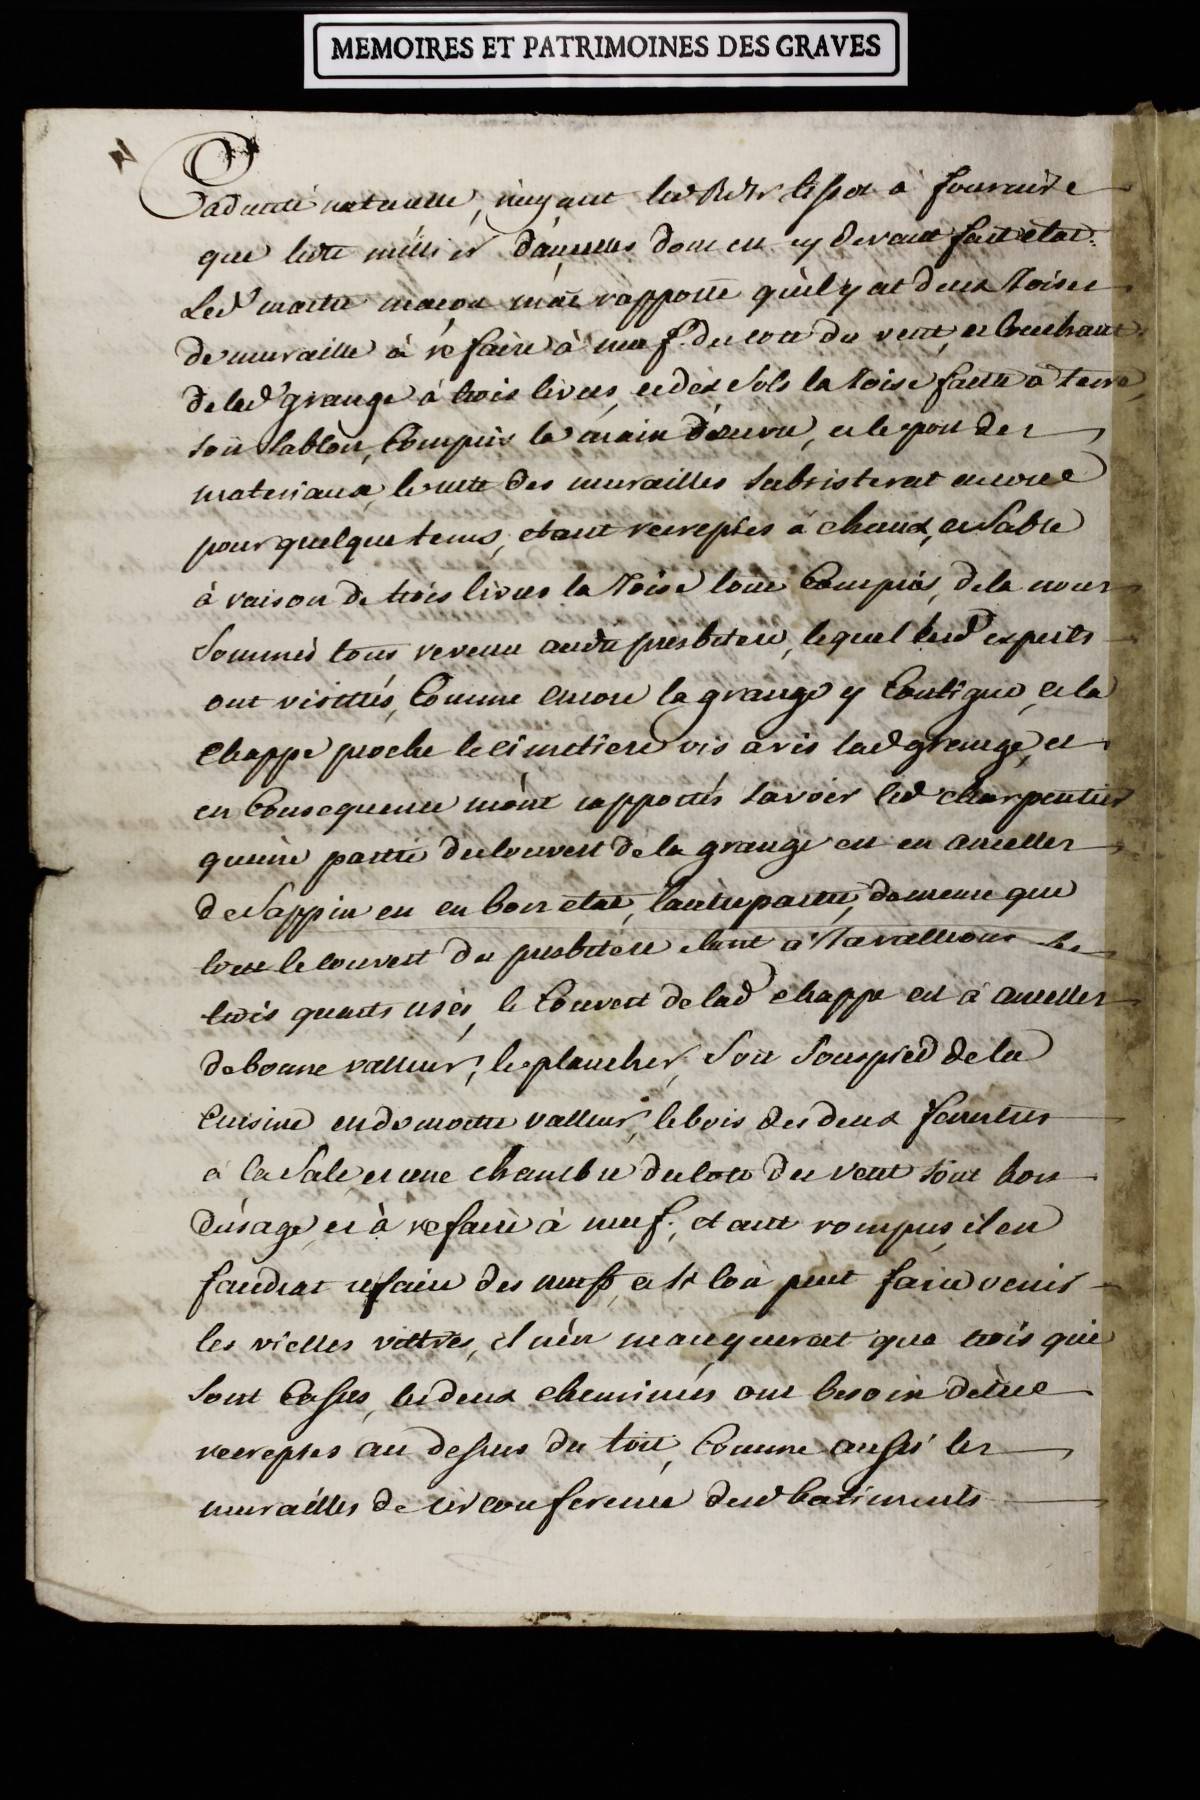 MEMOIRES ET PATRIMOINES DES GRAVES
Caducité naturelle, n'ayant led Rd Sr à fournire
que led millier d'ancelles dont est cy devant fait etat.
Led maitre macon m'at rapporté qu'il y at deux Toises
de muraille à refaire à neuf du coté du vent, et couchant
de lad grange à trois livres, et dix sols la Toise faitte à terre,
soit sablon, Compris la main d'œuvre, et le port des
materiaux, le reste des murailles subsisterat encore
pour quelque tems, etant recrepies à chaux, et sable
à raison de trois livres la Toise tout Compris, de la nous
sommes tous revenu audit presbitere, lequel lesd experts
ont visittés, Comme encore la grange y Contigue, et la
chappe proche le cimetiere vis avis lad grange, et
en Consequence m'ont rapportés savoir led charpentier
qu'une partie du couvert de la grange est en ancelles
de sappin en en bon etat, l'autre partie, de meme que
tout le couvert du presbitere etant à Tavallions
trois quarts usés, le Couvert de lad chappe est à ancelles
de bonne valleur, le plancher, soit souspied de la
Cuisine est de moitié valleur, le bois des deux fenetres
à la Sale, et une chambre du coté du vent sont hors
d'usage, et à refaire à neuf, etant rompus, il en
faudrat refaire des neufs, et si l'on peut faire venir
les vielles vittres, il n'en manquerat que trois qui
sont Cassés, les deux cheminés ont besoin d'etre
recrepies au dessus du toit, Comme aussi les
murailles de circonference desd batiments